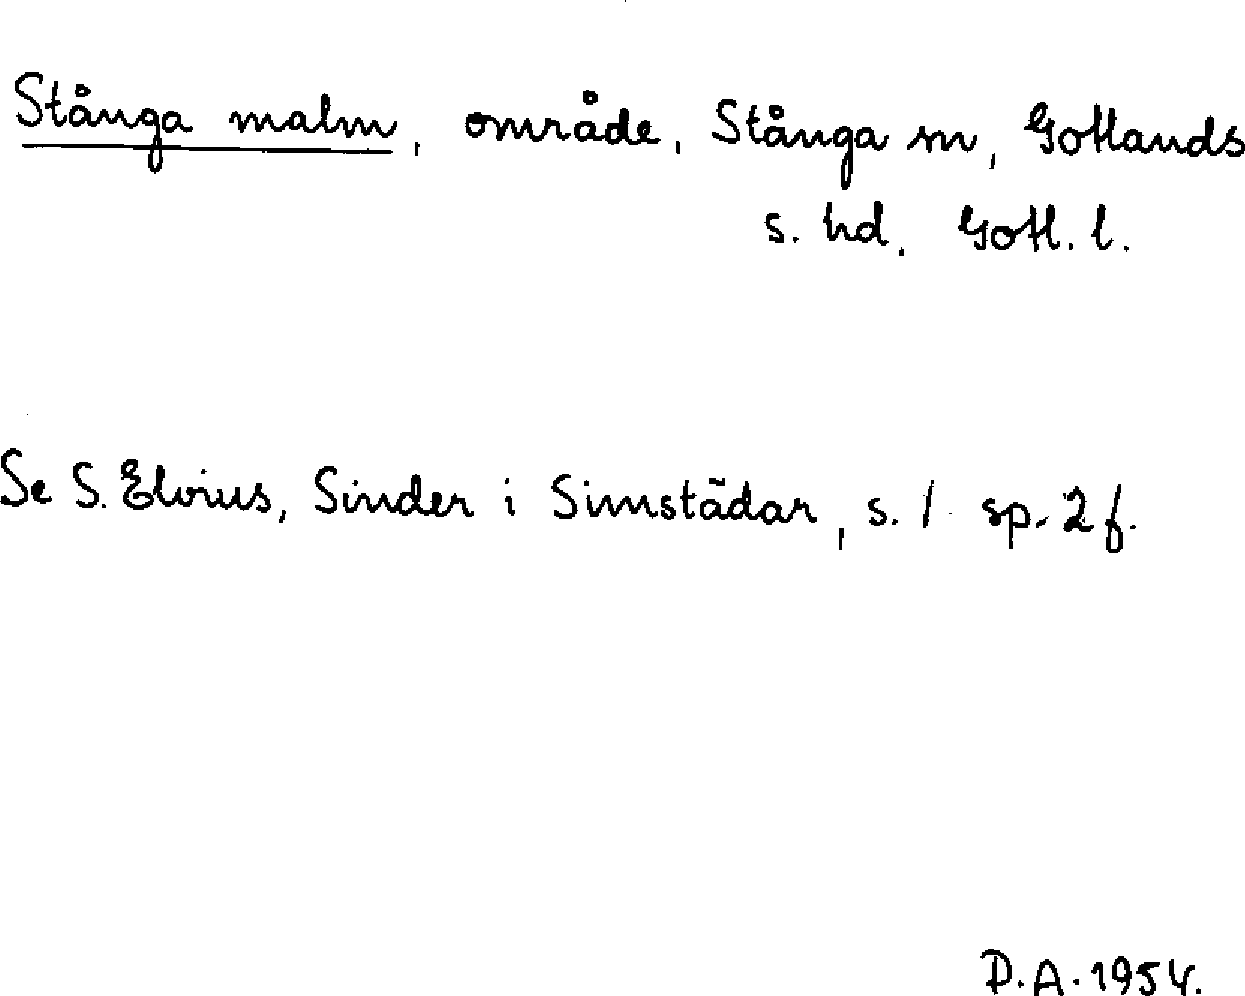 Stånga malm, område, Stånga sn, Gotlands
s. hd, Gotl. l.
Se S. Elvius, Sinder i Simstädar, s. 1 sp. 2 f.
D.A. 1954.